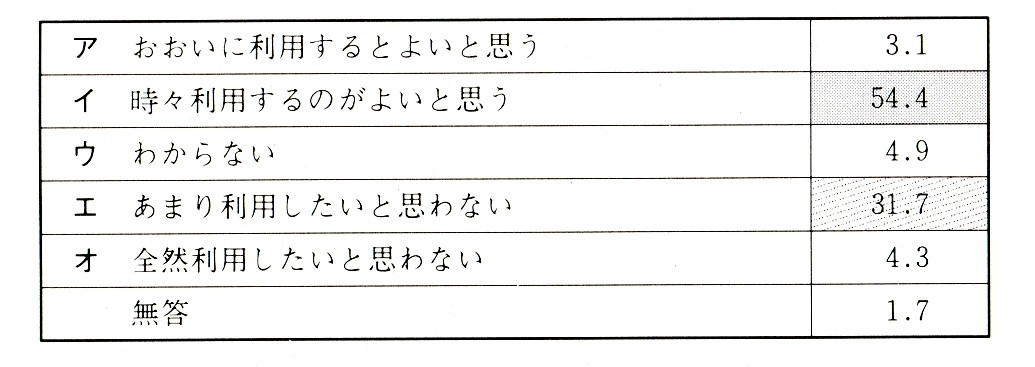 ア おおいに利用するとよいと思う 3.1
イ 時々利用するのがよいと思う 54.4
ウ わからない 4.9
エ あまり利用したいと思わない 31.7
オ 全然利用したいと思わない 4.3
無答 1.7